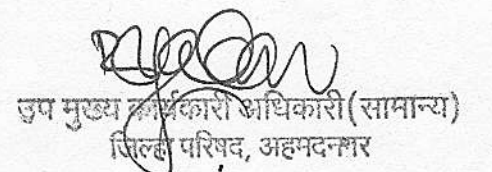 उप मुख्य कार्यकारी अधिकारी(सामान्य)
जिल्हा परिषद, अहमदनगर